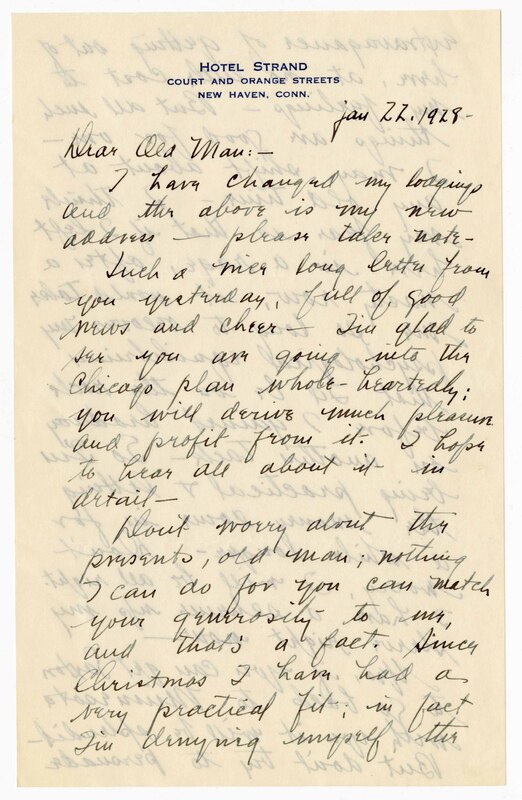 HOTEL STRAND
COURT AND ORANGE STREETS
NEW HAVEN, CONN.
Jan 22. 1928-
Dear Old Man:-
I have changed my lodgings
and the above is my new
address — please take note-
Such a nice long letter from
you yesterday, full of good
news and cheer — I'm glad to
see you are going into the
Chicago plan whole-heartedly;
you will derive much pleasure
and profit from it. I hope
to hear all about it in
detail —
Don't worry about the
presents, old man; nothing
I can do for you can match
your generosity to me,
and that's a fact. Since
Christmas I have had a
very practical fit; in fact
I'm denying myself the